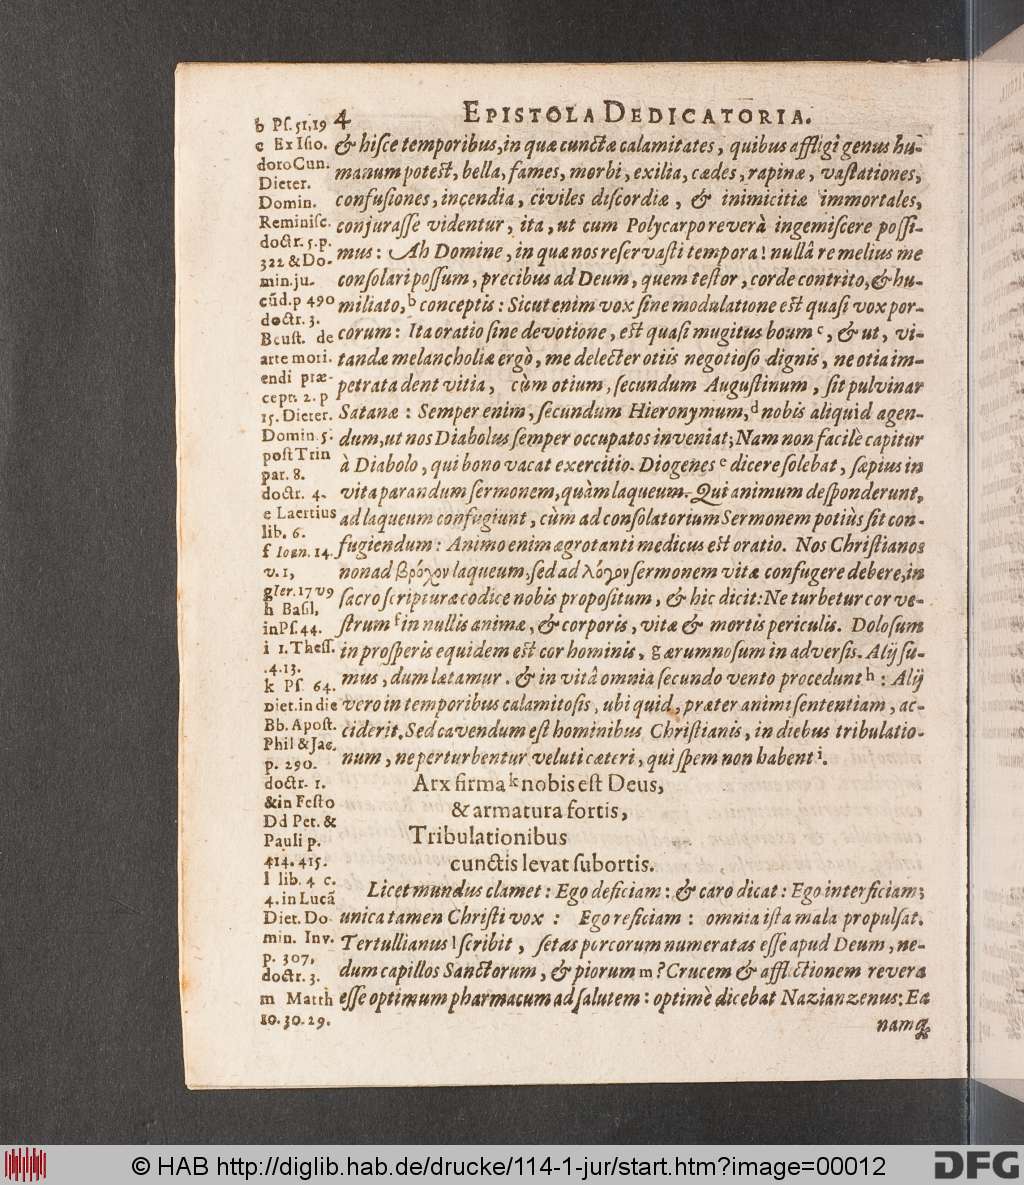 4 EPISTOLA DEDICATORIA.
& hisce temporibus, in quæ cunctæ calamitates, quibus affligi genus hu-
manum potest, bella, fames, morbi, exilia, cædes, rapinæ, vastationes,
confusiones, incendia, civiles discordiæ, & inimicitiæ immortales,
conjurasse videntur, ita, ut cum Polycarpo reverà ingemiscere possi-
mus: Ah Domine, in quæ nos reservasti tempora! nullâ re melius me
consolari possum, precibus ad Deum, quem testor, corde contrito, & hu-
miliato, b conceptis: Sicut enim vox sine modulatione est quasi vox por-
corum: Ita oratio sine devotione, est quasi mugitus boum c, & ut, vi-
tandæ melancholiæ ergò, me delecter otiis negotioso dignis, ne otia im-
petrata dent vitia, cùm otium, secundum Augustinum, sit pulvinar
Satanæ: Semper enim, secundum Hieronymum, d nobis aliquid agen-
dum, ut nos Diabolus semper occupatos inveniat; Nam non facilè capitur
à Diabolo, qui bono vacat exercitio. Diogenes e dicere solebat, sæpius in
vita parandum sermonem, quàm laqueum. Qui animum desponderunt,
ad laqueum confugiunt, cùm ad consolatorium Sermonem potiùs sit con-
fugiendum: Animo enim ægrotanti medicus est oratio. Nos Christianos
non ad βρόχον laqueum, sed ad λόγον sermonem vitæ confugere debere, in
sacro scripturæ codice nobis propositum, & hic dicit: Ne turbetur cor ve-
strum f in nullis animæ, & corporis, vitæ & mortis periculis. Dolosum
in prosperis equidem est cor hominis, g ærumnosum in adversis. Alij su-
mus, dum lætamur. & in vitâ omnia secundo vento procedunt h: Alij
vero in temporibus calamitosis, ubi quid, præter animi sententiam, ac-
ciderit. Sed cavendum est hominibus Christianis, in diebus tribulatio-
num, ne perturbentur veluti cæteri, qui spem non habent i.
Arx firma k nobis est Deus,
& armatura fortis,
Tribulationibus
cunctis levat subortis.
Licet mundus clamet: Ego deficiam: & caro dicat: Ego interficiam;
unica tamen Christi vox: Ego reficiam: omnia ista mala propulsat.
Tertullianus l scribit, setas porcorum numeratas esse apud Deum, ne-
dum capillos Sanctorum, & piorum m? Crucem & afflictionem revera
esse optimum pharmacum ad salutem: optimè dicebat Nazianzenus: Ea
namq;
b Ps. 51, 19
c Ex Isio.
doro Cun.
Dieter.
Domin.
Reminisc.
doctr. 5. p.
322 & Do-
min. ju-
cũd. p 490
doctr. 3.
Beust. de
arte mori-
endi præ-
cept. 2. p
15. Dieter.
Domin. 5.
post Trin
par. 8.
doctr. 4.
e Laertius
lib. 6.
f Ioan. 14.
v. 1,
g Ier. 17 v 9
h Basil,
in Ps. 44.
i 1. Thess.
.4.13.
k Ps. 64.
Diet. in die
Bb. Apost.
Phil & Jac.
p. 290.
doctr. 1.
& in Festo
Dd Pet. &
Pauli p.
414. 415.
l lib. 4 c.
4. in Lucã
Diet. Do
min. Inv.
p. 307,
doctr. 3.
m Matth
10. 30. 29.
© HAB http://diglib.hab.de/drucke/114-1-jur/start.htm?image=00012
DFG